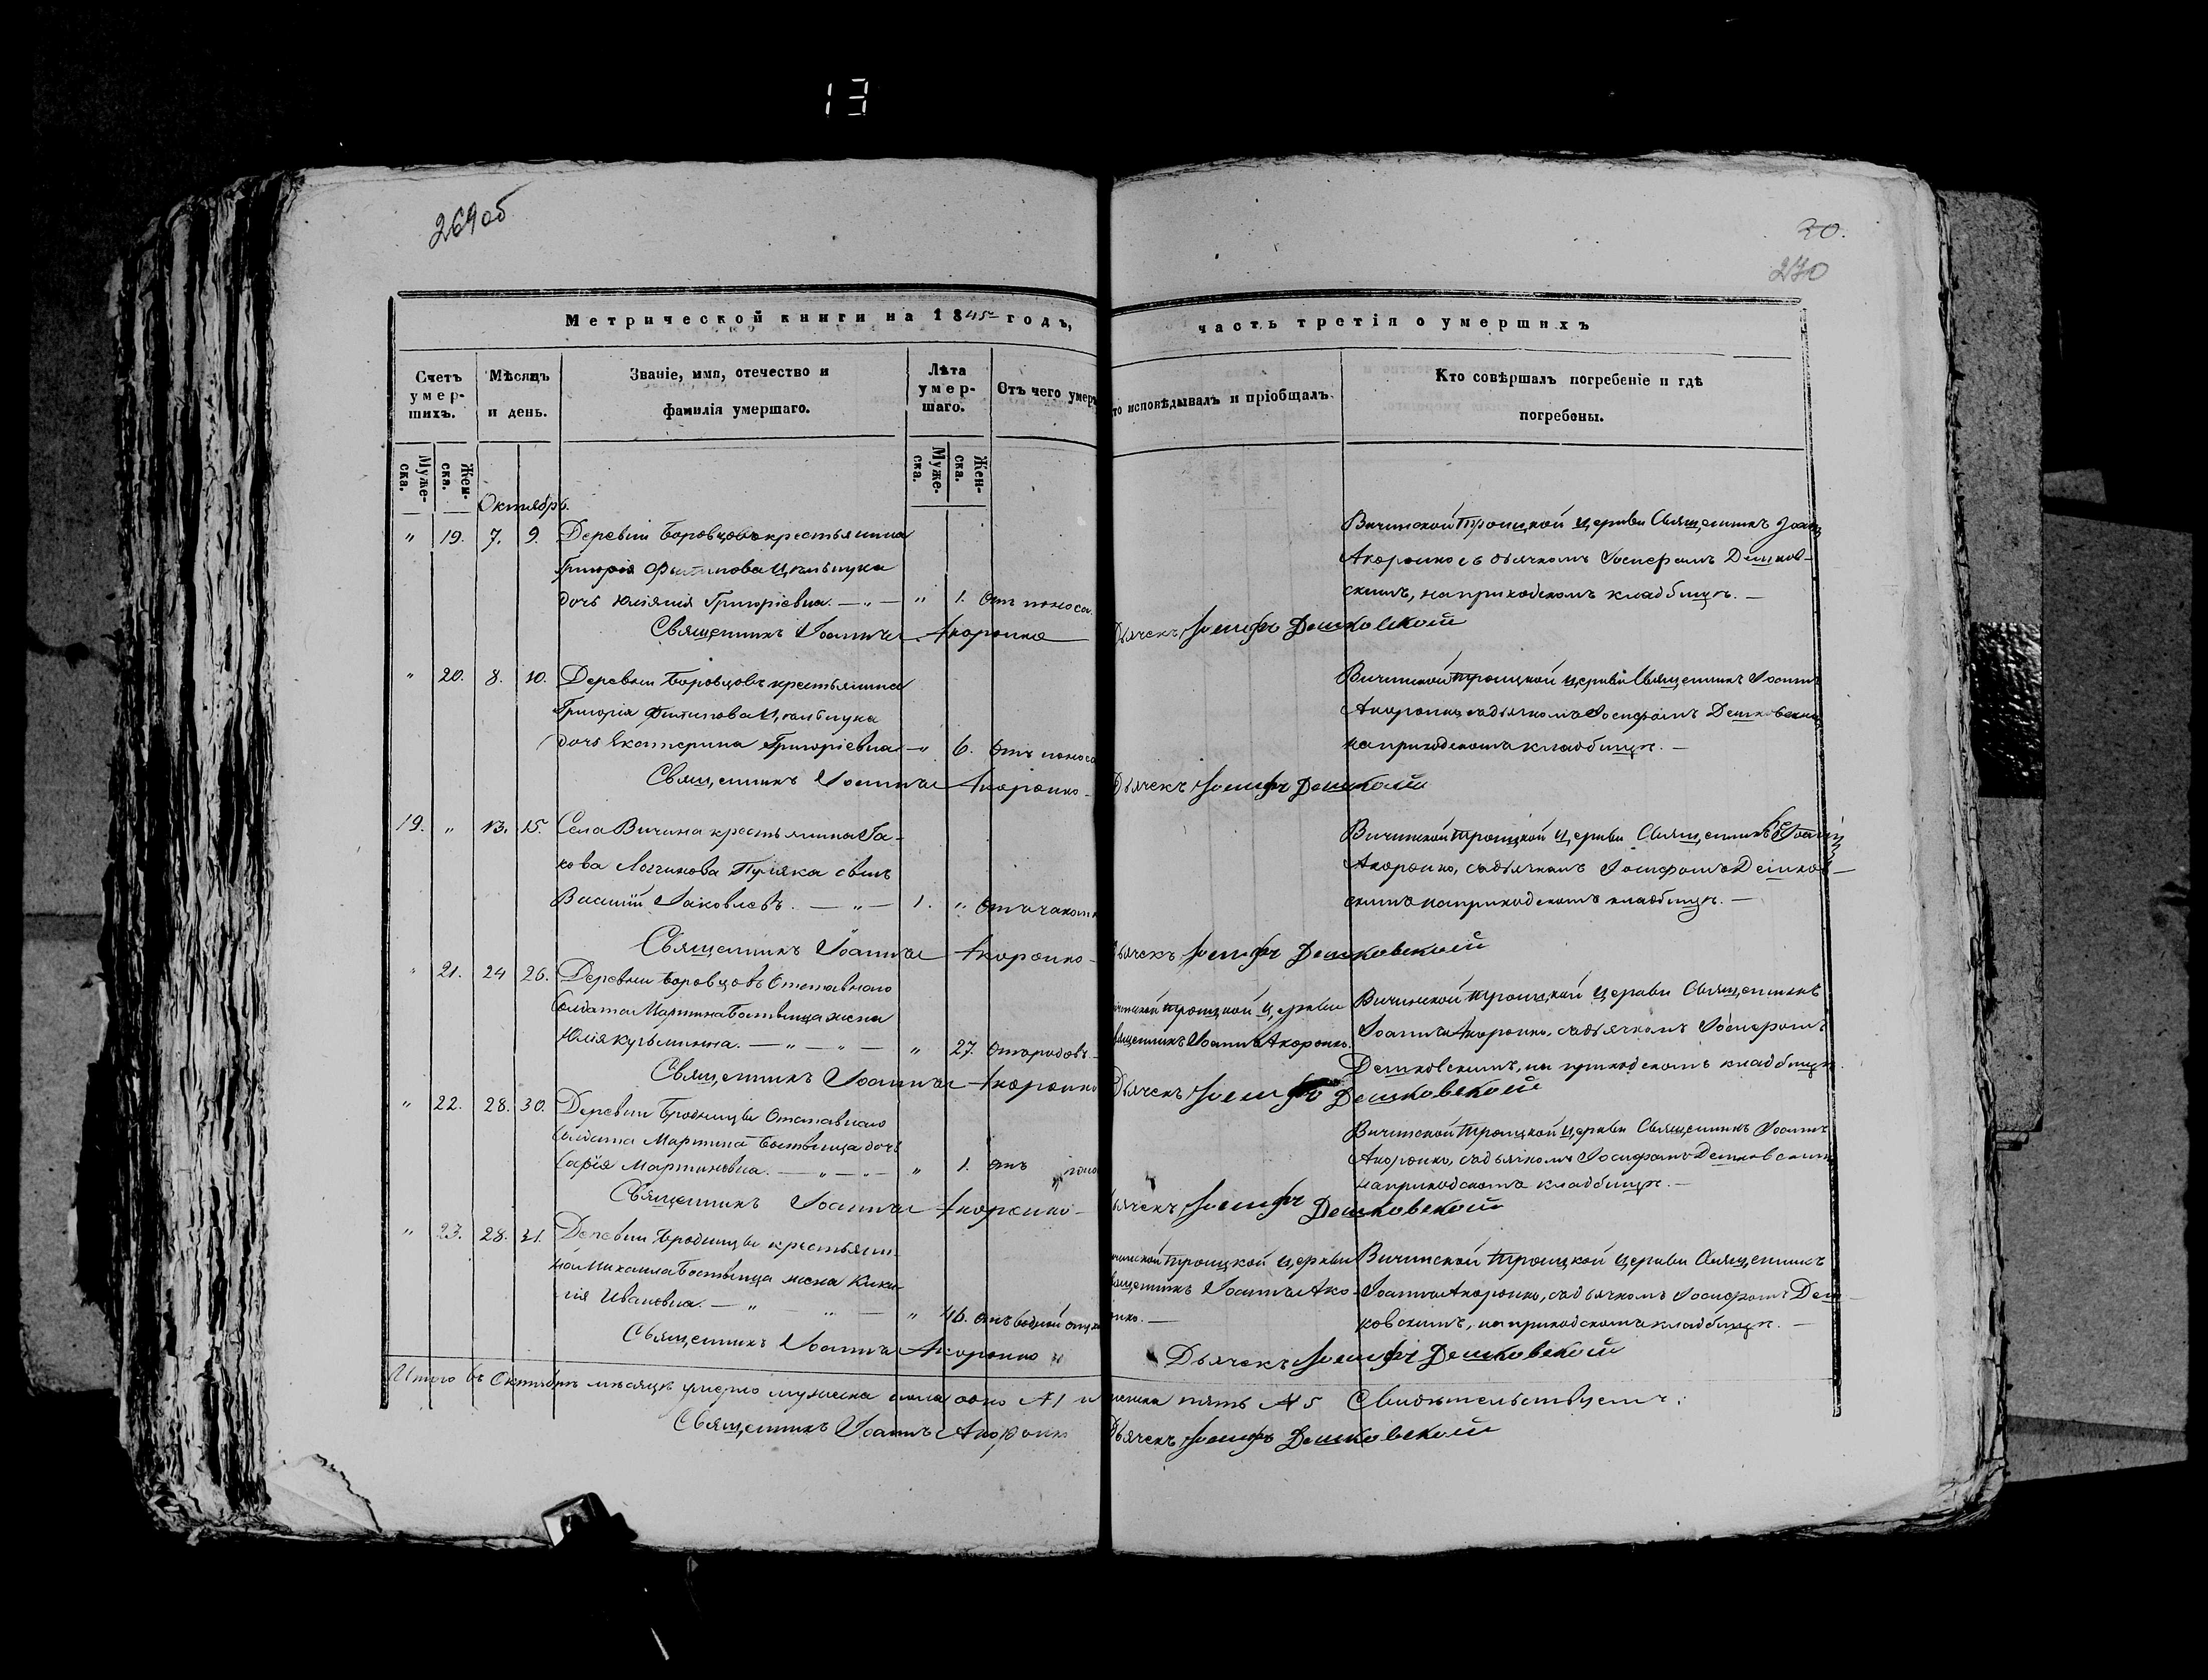 13
269об
20.
270
Метрической книги на 1845 годъ,
часть третія о умершихъ
Счетъ умер-шихъ.
Мѣсяцъ и день.
Званіе, имя, отечество и фамилія умершаго.
Лѣта умер-шаго.
Отъ чего умеръ
то исповѣдывалъ и пріобщалъ.
Кто совѣршалъ погребеніе и гдѣ погребены.
Муже-ска.
Жен-ска.
Муже-ска.
Жен-ска.
Октябрь.
" 19. 7. 9. Деревни Боровцовъ крестьянина
Григорія Филипова
дочь Юліянія Григоріевна. — " — " 1. Отъ поноса.
Священникъ Іоаннъ Акоронко
Дьячекъ Іосифъ Дешковской
Вичинской Троицкой Церкви Священникъ Іоаннъ
Акоронко съ дьячкомъ Іосифомъ Дешков-
скимъ, на приходскомъ кладбищѣ. —
" 20. 8. 10. Деревни Боровцовъ крестьянина
Григорія Филипова
дочь Екатерина Григоріевна — " 6. Отъ поноса
Священникъ Іоаннъ Акоронко
Дьячекъ Іосифъ Дешковской
Вичинской Троицкой Церкви Священникъ Іоаннъ
Акоронко, съ дьячкомъ Іосифомъ Дешковским
на приходскомъ кладбищѣ. —
19. " 13. 15. Села Вичина крестьянина Іа-
кова Логинова сынъ
Василій Іаковлевъ. — " — 1. "
Священникъ Іоаннъ Акоронко
Дьячекъ Іосифъ Дешковской
Вичинской Троицкой Церкви Священникъ Іоаннъ
Акоронко, съ дьячкомъ Іосифомъ Дешков-
скимъ на приходскомъ кладбищѣ. —
" 21. 24 26. Деревни Боровцовъ Отставнаго
Солдата Мартина жена
Юлія Кузьминна. — " — " — " 27. Отъ родовъ.
Священникъ Іоаннъ Акоронко
ичинской Троицкой Церкви
вященникъ Іоаннъ Акоронко.
Дьячекъ Іосифъ Дешковской
Вичинской Троицкой Церкви Священникъ
Іоаннъ Акоронко, съ дьячкомъ Іосифомъ
Дешковскимъ, на приходскомъ кладбищѣ.
" 22. 28. 30. Деревни Бродницы Отставнаго
Солдата Мартина дочь
Мартиновна. — " — " — " 1. отъ поно
Священникъ Іоаннъ Акоронко
Дьячекъ Іосифъ Дешковской
Вичинской Троицкой Церкви Священникъ Іоаннъ
Акоронко, съ дьячкомъ Іосифомъ Дешковским
на приходскомъ кладбищѣ. —
" 23. 28. 31. Деревни Бродницы крестьяни-
на Михаила жена
Ивановна. — " — " — " 46. отъ водной
Священникъ Іоаннъ Акоронко
ичинской Троицкой Церкви
вященникъ Іоаннъ Ако-
онко. —
Дьячекъ Іосифъ Дешковской
Вичинской Троицкой Церкви Священникъ
Іоаннъ Акоронко, съ дьячкомъ Іосифомъ Деш-
ковскимъ, на приходскомъ кладбищѣ. —
Итого въ Октябрѣ мѣсяцѣ умерло мужеска пола одно №1 и женска пять №5 Свидѣтельствуемъ:
Священникъ Іоаннъ Акоронко Дьячекъ Іосифъ Дешковской